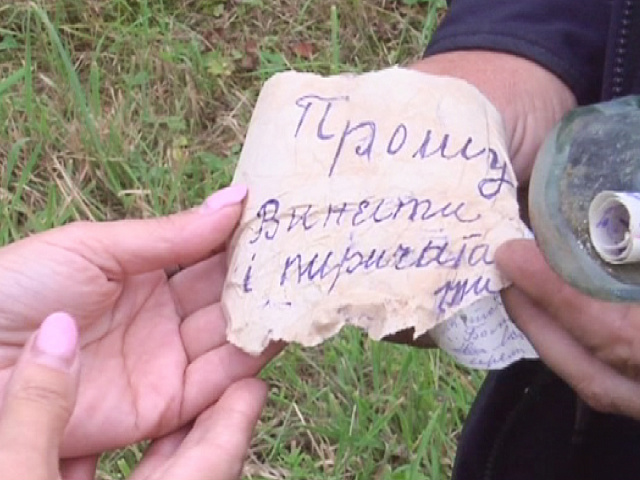 Прошу
Винети
і пиричата
ти